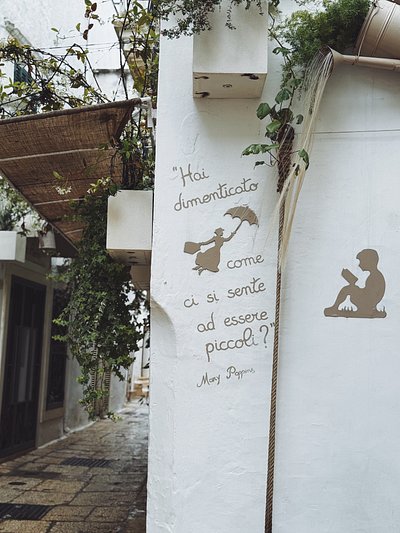 "Hai
dimenticato
come
ci si sente
ad essere
piccoli?"
Mary Poppins